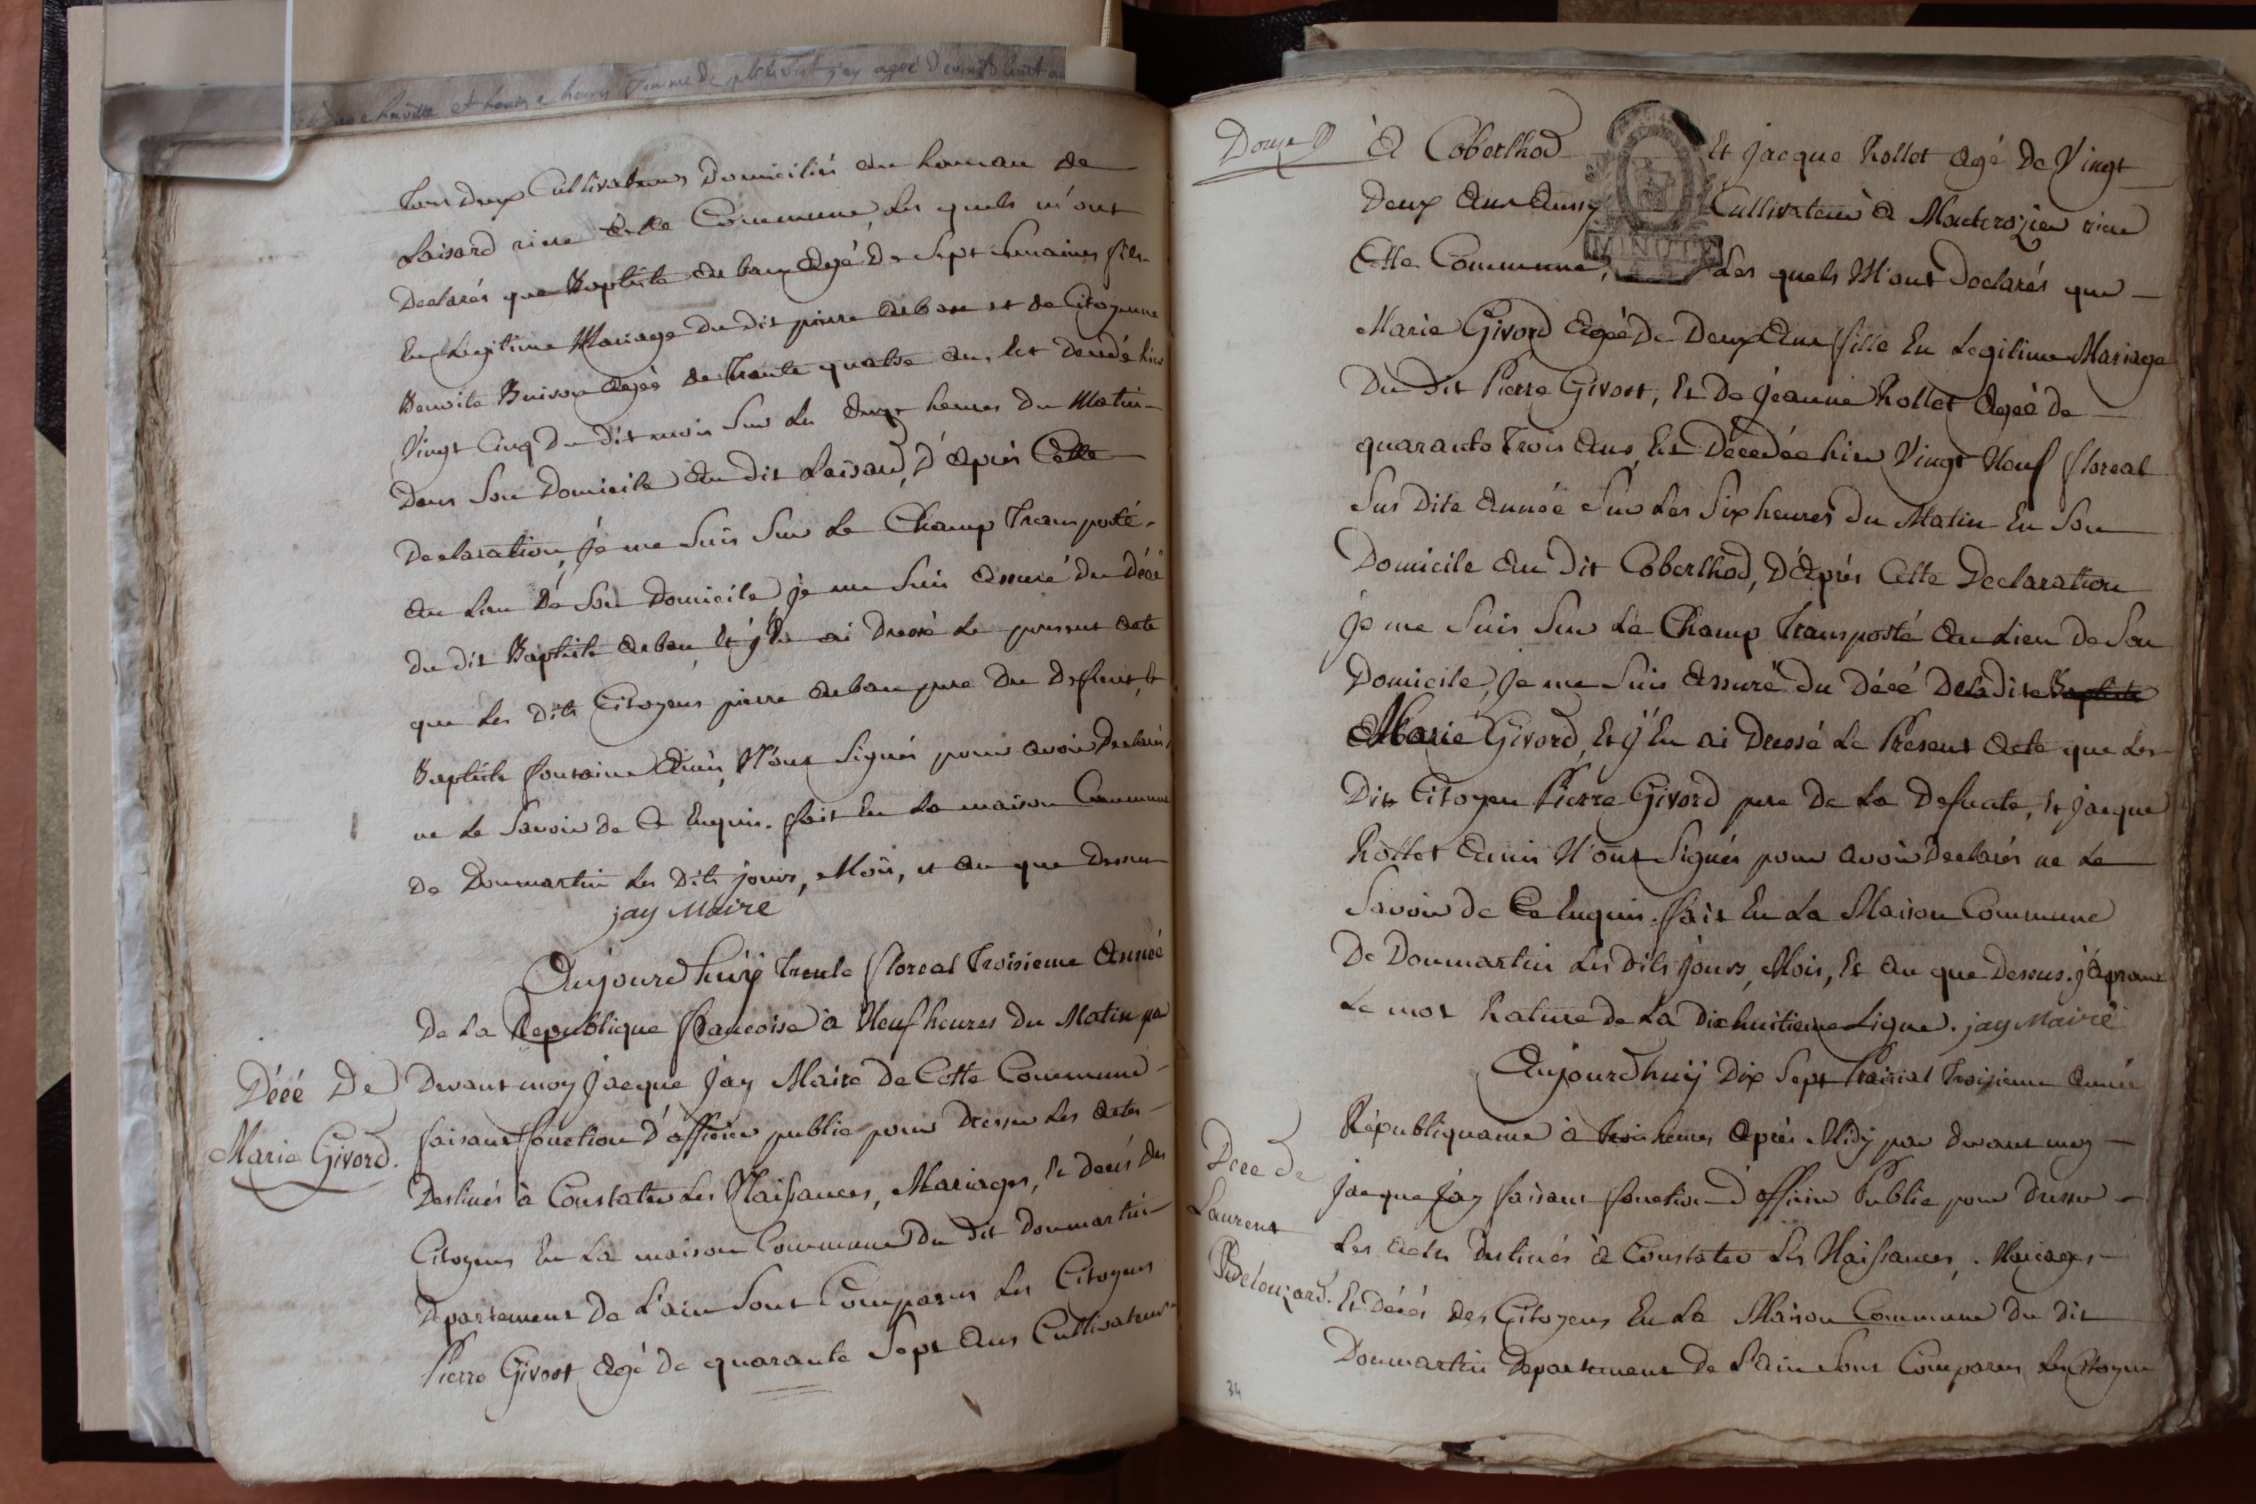 Tous Deux Cultivateurs Domiciliés au hameau de
Laisard riere Cette Commune, Les quels m'ont
Declarés que Baptiste Arban Agé De Sept Semaines fils
En Legitime Mariage Du dit pierre Arban et de Citoyenne
Benoite Buison Ageé de Trante quatre an, Est Decedé hier
Vingt Cinq Du dit mois Sur Les Onze heures Du Matin
Dans Son Domicile Au dit Laisard, D'Après Cette
Declaration, Je me Suis Sur Le Champ Transporté
Au Lieu Dé Son Domicile je me Suis Assuré du Décé
du dit Baptiste Arban Et j'En ai Dressé Le present Acte
que Les Dits Citoyens pierre Arban pere Du Defunt, Et
Baptiste fontaine Amis, N'ont Signés pour avoir Declarés
ne Le Savoir de Ce Enquis. fait En La maison Commune
de Dommartin Les Dits jours, Mois, et an que Dessus
jay Maire
Aujourdhuÿ Trente floreal Troisieme Anneé
De La Republique francoise à Neuf heures Du Matin par
Décé De
Marie Givord.
Devant moy Jacque Jay Maire De Cette Commune
faisant fonction d'officier public pour Dresser Les Actes
Destinés à Constater Les Naissances, Mariages, Et decés des
Citoyens En La maison Commune Du Dit Dommartin
Departement De L'ain Sont Comparus Les Citoyens
Pierre Givort Agé De quarante Sept Ans Cultivateur
Douze
À Coberthod Et Jacque Rollet Agé De Vingt
Deux Ans Aussy Cultivateur À Montcrozier riere
MINUTE
Cette Commune, Les quels M'ont Declarés que
Marie Givord Ageé De Deux Ans fille En Legitime Mariage
Du Dit Pierre Givort, Et De Jeanne Rollet Ageé de
quarante Trois Ans, Est Decedée hier Vingt Neuf floreal
Sus Dite Année Sur Les Six heures Du Matin En Son
Domicile Au Dit Coberthod, D'Après Cette Declaration
Je me Suis Sur Le Champ Transporté Au Lieu De Son
Domicile, Je me Suis Assuré Du Décé De La Dite Baptiste
Marie Givord, Et j'En ai Dressé Le Present Acte que Les
Dits Citoyen Pierre Givord pere De La Defunte, Et Jacque
Rollet Amis N'ont Signés pour avoir Declarés ne Le
Savoir de Ce Enquis. fait En La Maison Commune
De Dommartin Les Dits Jours, Mois, Et an que Dessus. j'Aprouve
Le mot Rature de La Dixhuitieme Ligne. jay Maire
Aujourdhuÿ Dix Sept Prairial Troisieme Année
Républiquaine à Trois heures Après Midy par devant moy
Décé de
Laurent
Belouzard.
Jacque Jay faisant fonction d'officier Public pour Dresser
Les Actes Destinés à Constater Les Naissances, Mariages
Et Décés des Citoyens En La Maison Commune du dit
Dommartin Departement De L'ain Sont Comparus Les Citoyens
34